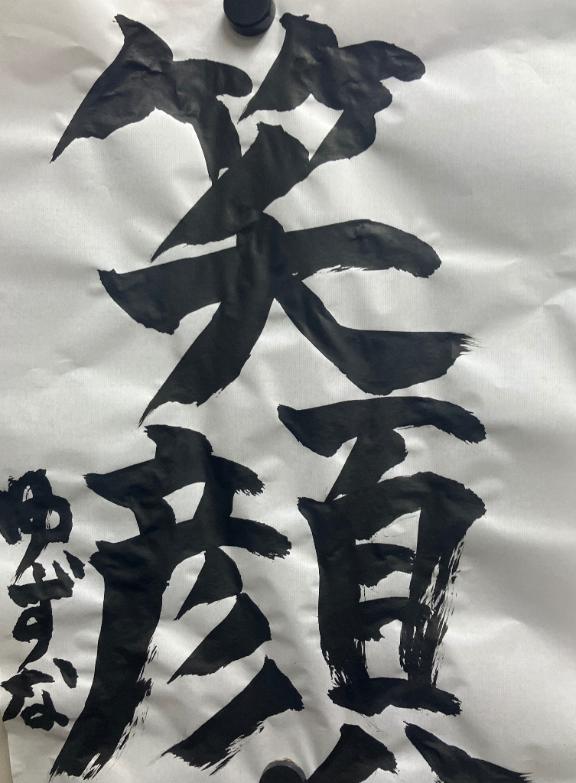 笑顔
ゆずな